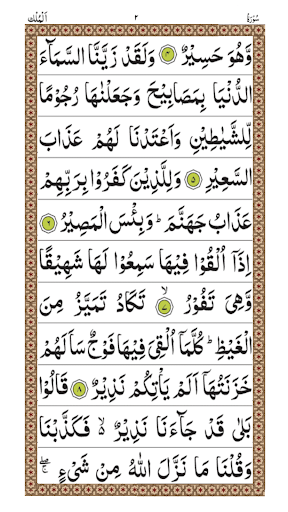 سُوْرَةُ ٢ اَلْمُلْك
وَّهُوَ حَسِیْرٌ ﴿۴﴾ وَلَقَدْ زَیَّنَّا السَّمَآءَ
الدُّنْیَا بِمَصَابِیْحَ وَجَعَلْنٰهَا رُجُوْمًا
لِّلشَّیٰطِیْنِ وَاَعْتَدْنَا لَهُمْ عَذَابَ
السَّعِیْرِ ﴿۵﴾ وَلِلَّذِیْنَ كَفَرُوْا بِرَبِّهِمْ
عَذَابُ جَهَنَّمَ ؕ وَبِئْسَ الْمَصِیْرُ ﴿۶﴾
اِذَاۤ اُلْقُوْا فِیْهَا سَمِعُوْا لَهَا شَهِیْقًا
وَّهِیَ تَفُوْرُ ﴿۷﴾ۙ تَكَادُ تَمَیَّزُ مِنَ
الْغَیْظِ ؕ كُلَّمَاۤ اُلْقِیَ فِیْهَا فَوْجٌ سَاَلَهُمْ
خَزَنَتُهَاۤ اَلَمْ یَاْتِكُمْ نَذِیْرٌ ﴿۸﴾ قَالُوْا
بَلٰی قَدْ جَآءَنَا نَذِیْرٌ ۙ۬ فَكَذَّبْنَا
وَقُلْنَا مَا نَزَّلَ اللّٰهُ مِنْ شَیْءٍ ۚۖ